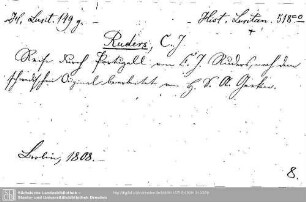 H. Lusit. 149 g. Hist. Lusitan. 518
Ruders, C. J
Reise durch Portugall von C. J. Ruders, nach dem
schwedischen Original bearbeitet von H. S. A. Gerken.
Berlin, 1808.
8.
Sächsische Landesbibliothek -
Staats- und Universitätsbibliothek Dresden